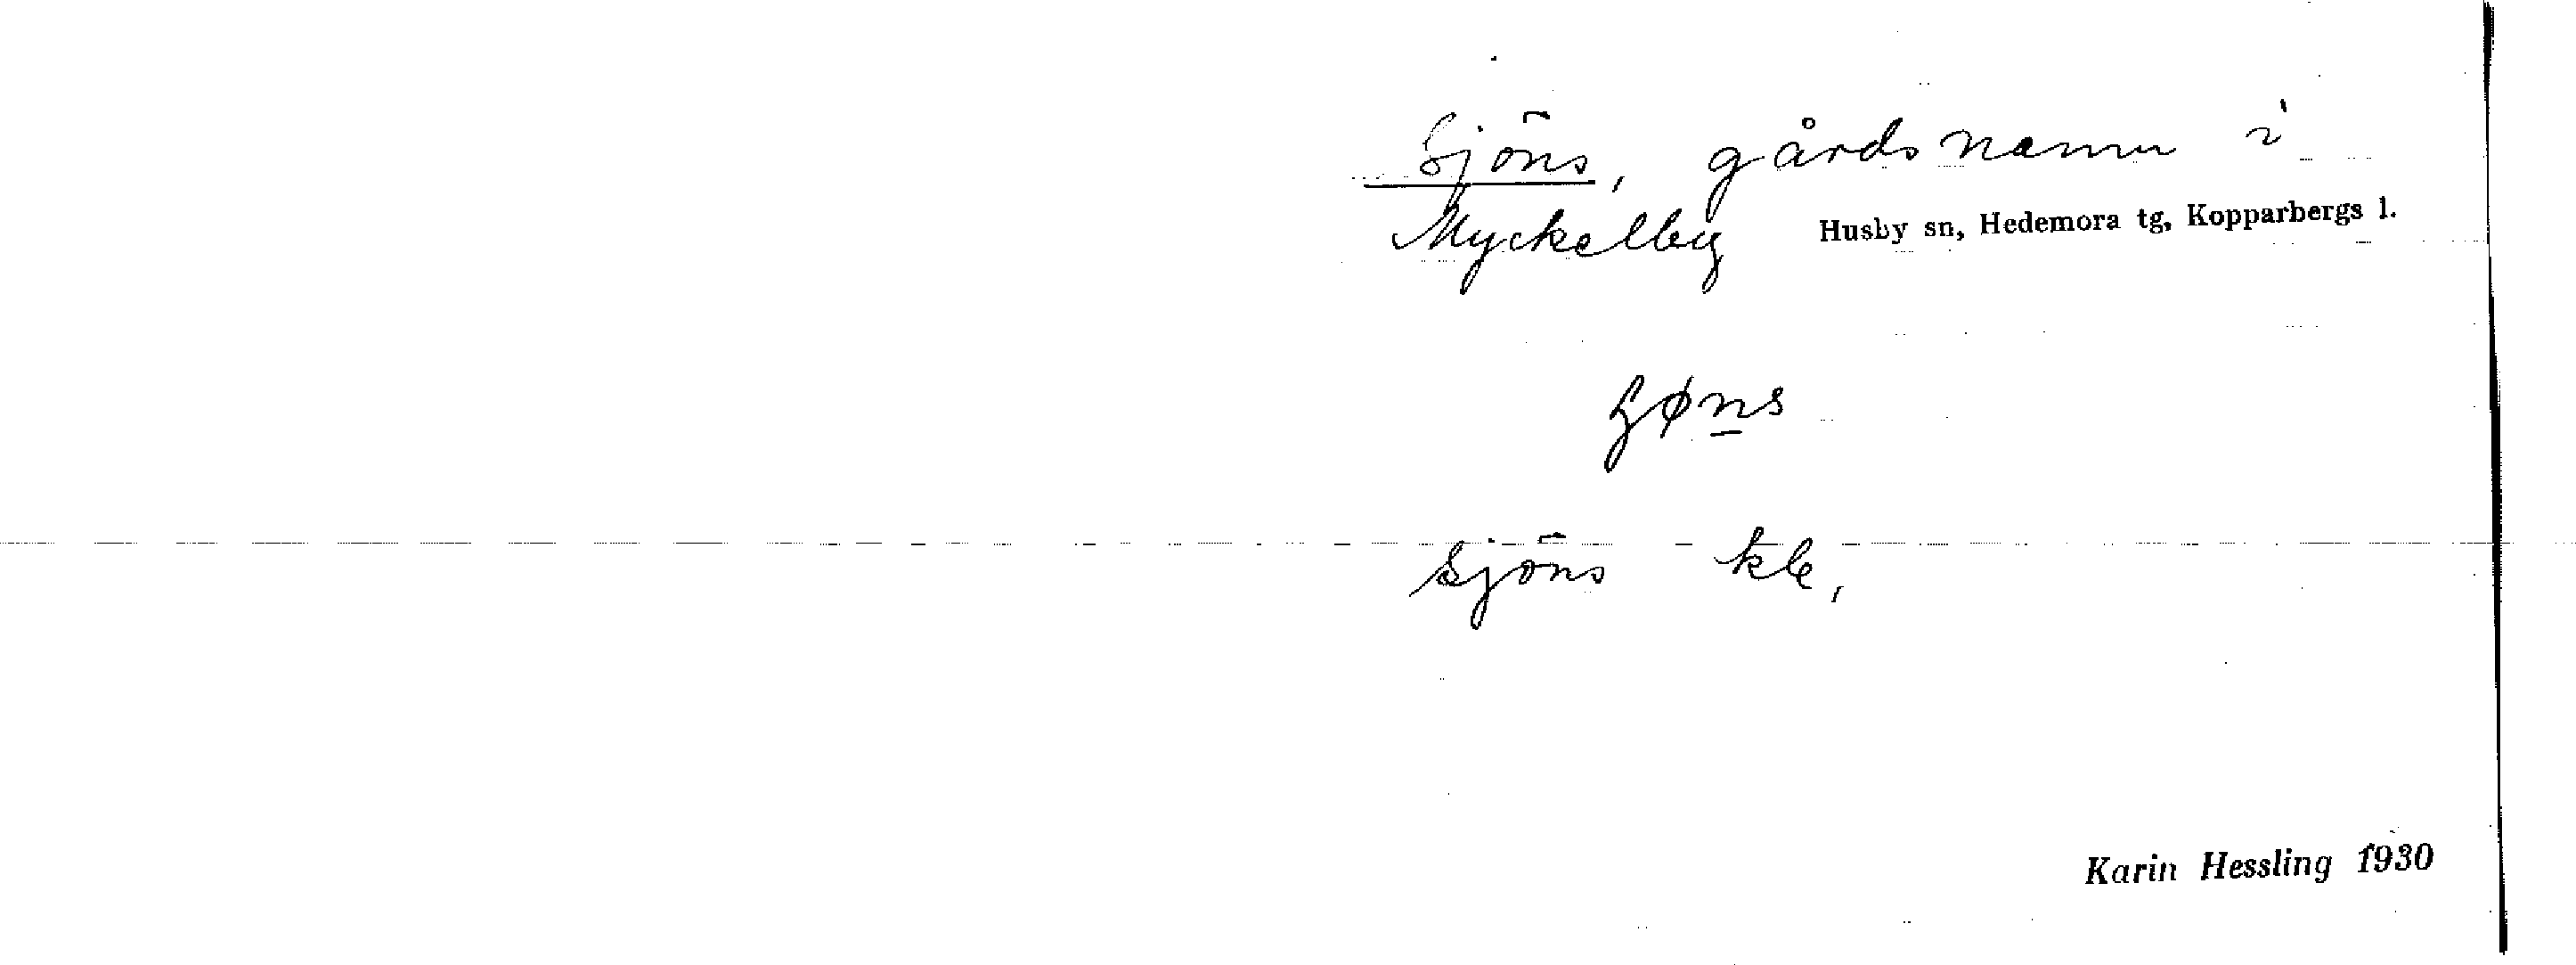 Sjöns, gårdsnamn i
Myckelby Husby sn, Hedemora tg, Kopparbergs l.
sjöns kle,
Karin Hessling 1930